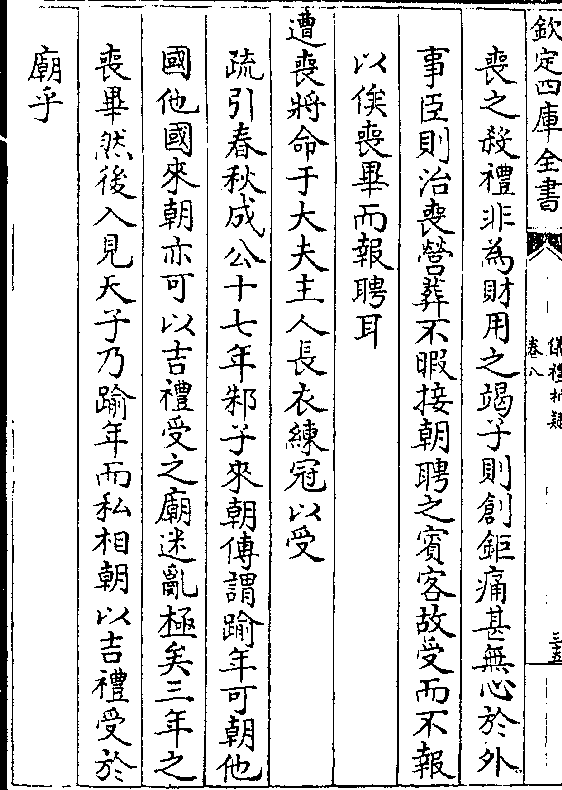 欽定四庫全書
儀禮析疑
卷八
三五
喪之殺禮非為財用之竭子則創鉅痛甚無心於外
事臣則治喪營葬不暇接朝聘之賓客故受而不報
以俟喪畢而報聘耳
遭喪將命于大夫主人長衣練冠以受
疏引春秋成公十七年邾子來朝傳謂踰年可朝他
國他國來朝亦可以吉禮受之廟迷亂極矣三年之
喪畢然後入見天子乃踰年而私相朝以吉禮受於
廟乎